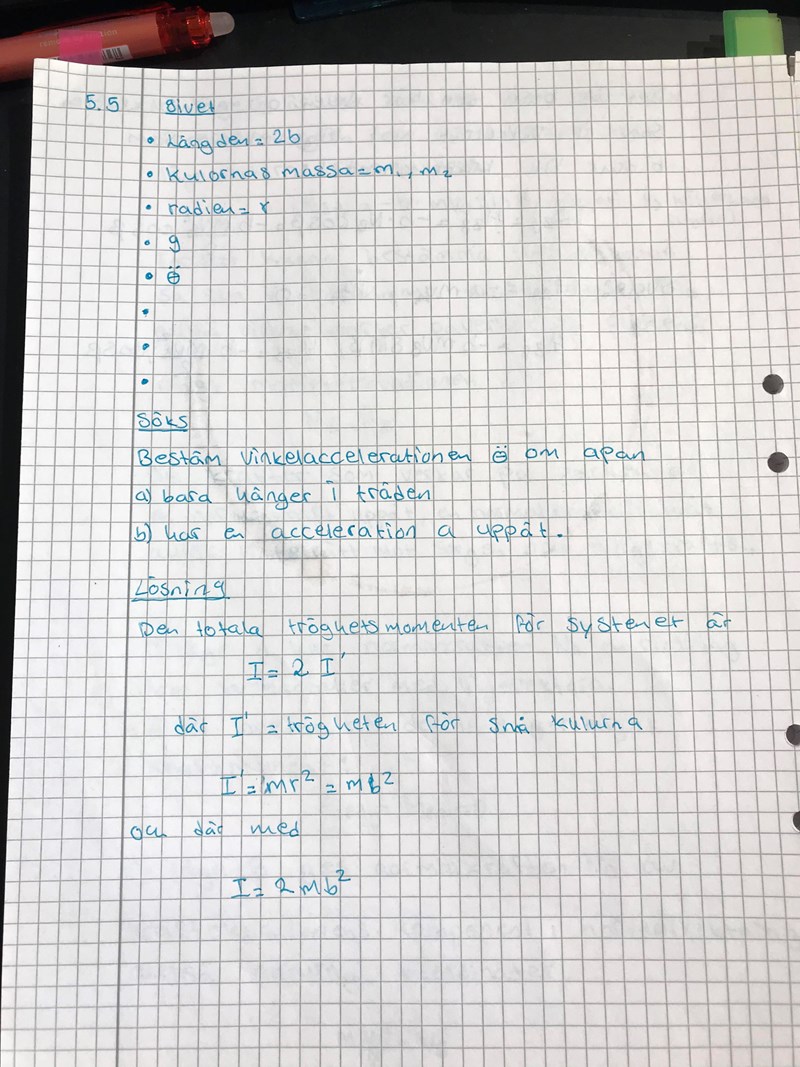 5.5 Givet
• Längden = 2b
• Kulornas massa = m₁, m₂
• radien = r
• g
• θ̈
•
•
•
Söks
Bestäm vinkelaccelerationen θ̈ om apan
a) bara hänger i tråden
b) har en acceleration a uppåt.
Lösning
Den totala tröghetsmomenten för systemet är
I = 2 I'
där I' = trögheten för små kulurna
I' = mr² = mb²
och där med
I = 2mb²